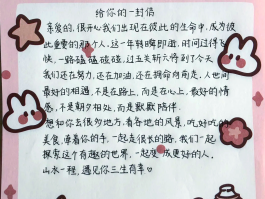 给你的一封信
亲爱的,很开心我们出现在彼此的生命中,成为彼
此重要的那个人,这一年转瞬即逝,时间过得飞
快,一路磕磕碰碰,过五关斩六将到了今天
我们还在努力,还在加油,还在拥命向南走,人世间
最好的相遇,不是在路上,而是在心上,最好的情
感,不是朝夕相处,而是默默陪伴.
想和你去很多地方,看各地的风景,吃好吃的
美食,牵着你的手,一起走很长的路,我们一起
探索这个有趣的世界,一起变成更好的人.
山水一程,遇见你三生有幸♡